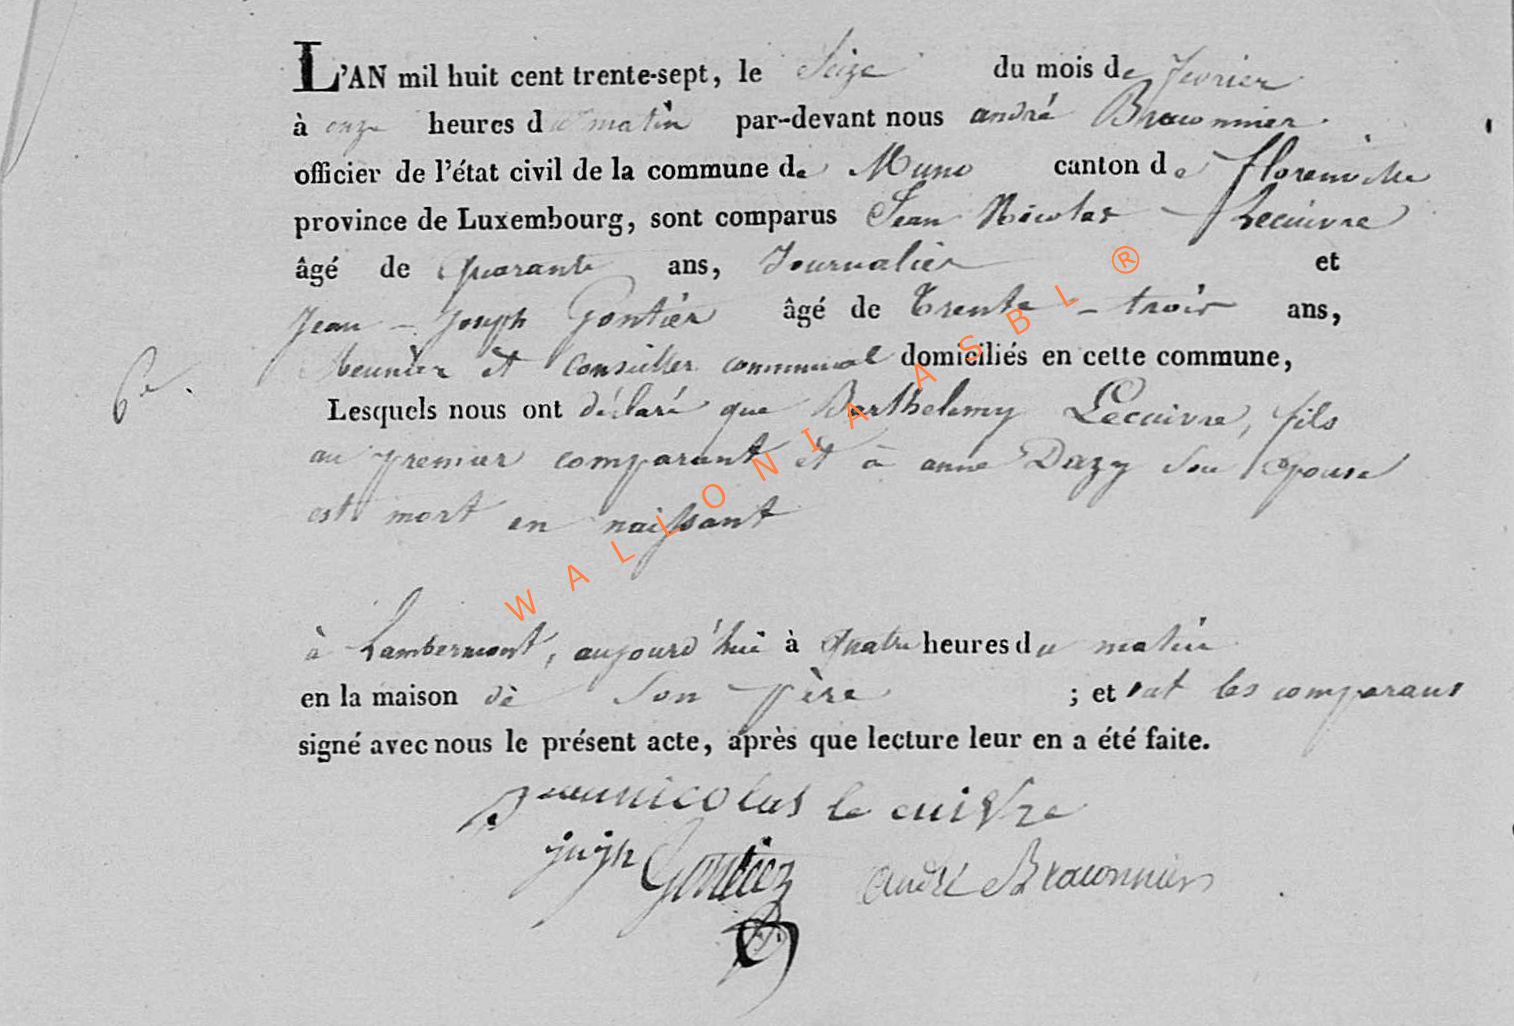 L'AN mil huit cent trente-sept, le Seize du mois de fevrier
à onze heures du matin par-devant nous andré Braconnier
officier de l'état civil de la commune de Muno canton de florenville
province de Luxembourg, sont comparus Jean Nicolas Lecuivre
âgé de quarante ans, Journalier et
Jean-Joseph Gontier âgé de Trente-trois ans,
Meunier et Conseiller communal domiciliés en cette commune,
6e.
Lesquels nous ont déclaré que Barthelemy Lecuivre, fils
au premier comparant et à anne Dazy son Epouse
est mort en naissant
à Lambermont, aujourd'hui à quatre heures du matin
en la maison de son père ; et ont les comparans
signé avec nous le présent acte, après que lecture leur en a été faite.
jean nicolas le cuivre
joseph Gontiez andré Braconnier
WALLONIA ASBL ®